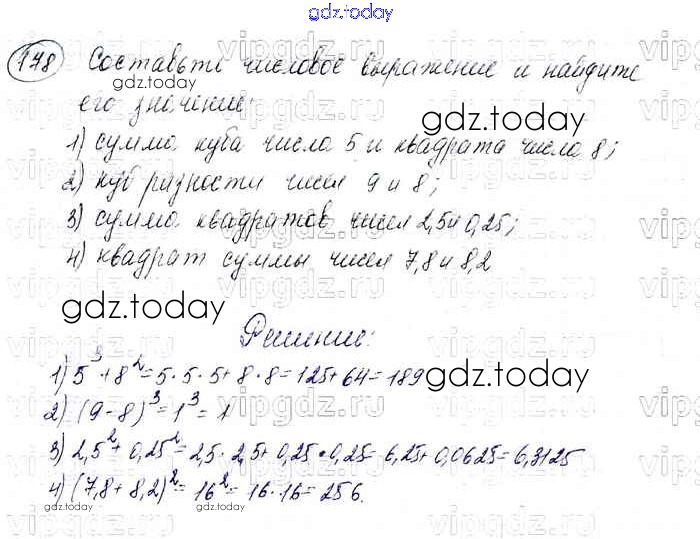 gdz.today
178 Составьте числовое выражение и найдите
его значение:
1) сумма куба числа 5 и квадрата числа 8;
2) куб разности чисел 9 и 8;
3) сумма квадратов чисел 2,5 и 0,25;
4) квадрат суммы чисел 7,8 и 8,2
Решение:
1) 5³+8²=5·5·5+8·8=125+64=189
2) (9-8)³=1³=1
3) 2,5²+0,25²=2,5·2,5+0,25·0,25=6,25+0,0625=6,3125
4) (7,8+8,2)²=16²=16·16=256.
gdz.today
gdz.today
gdz.today
gdz.today
gdz.today
gdz.today
vipgdz.ru